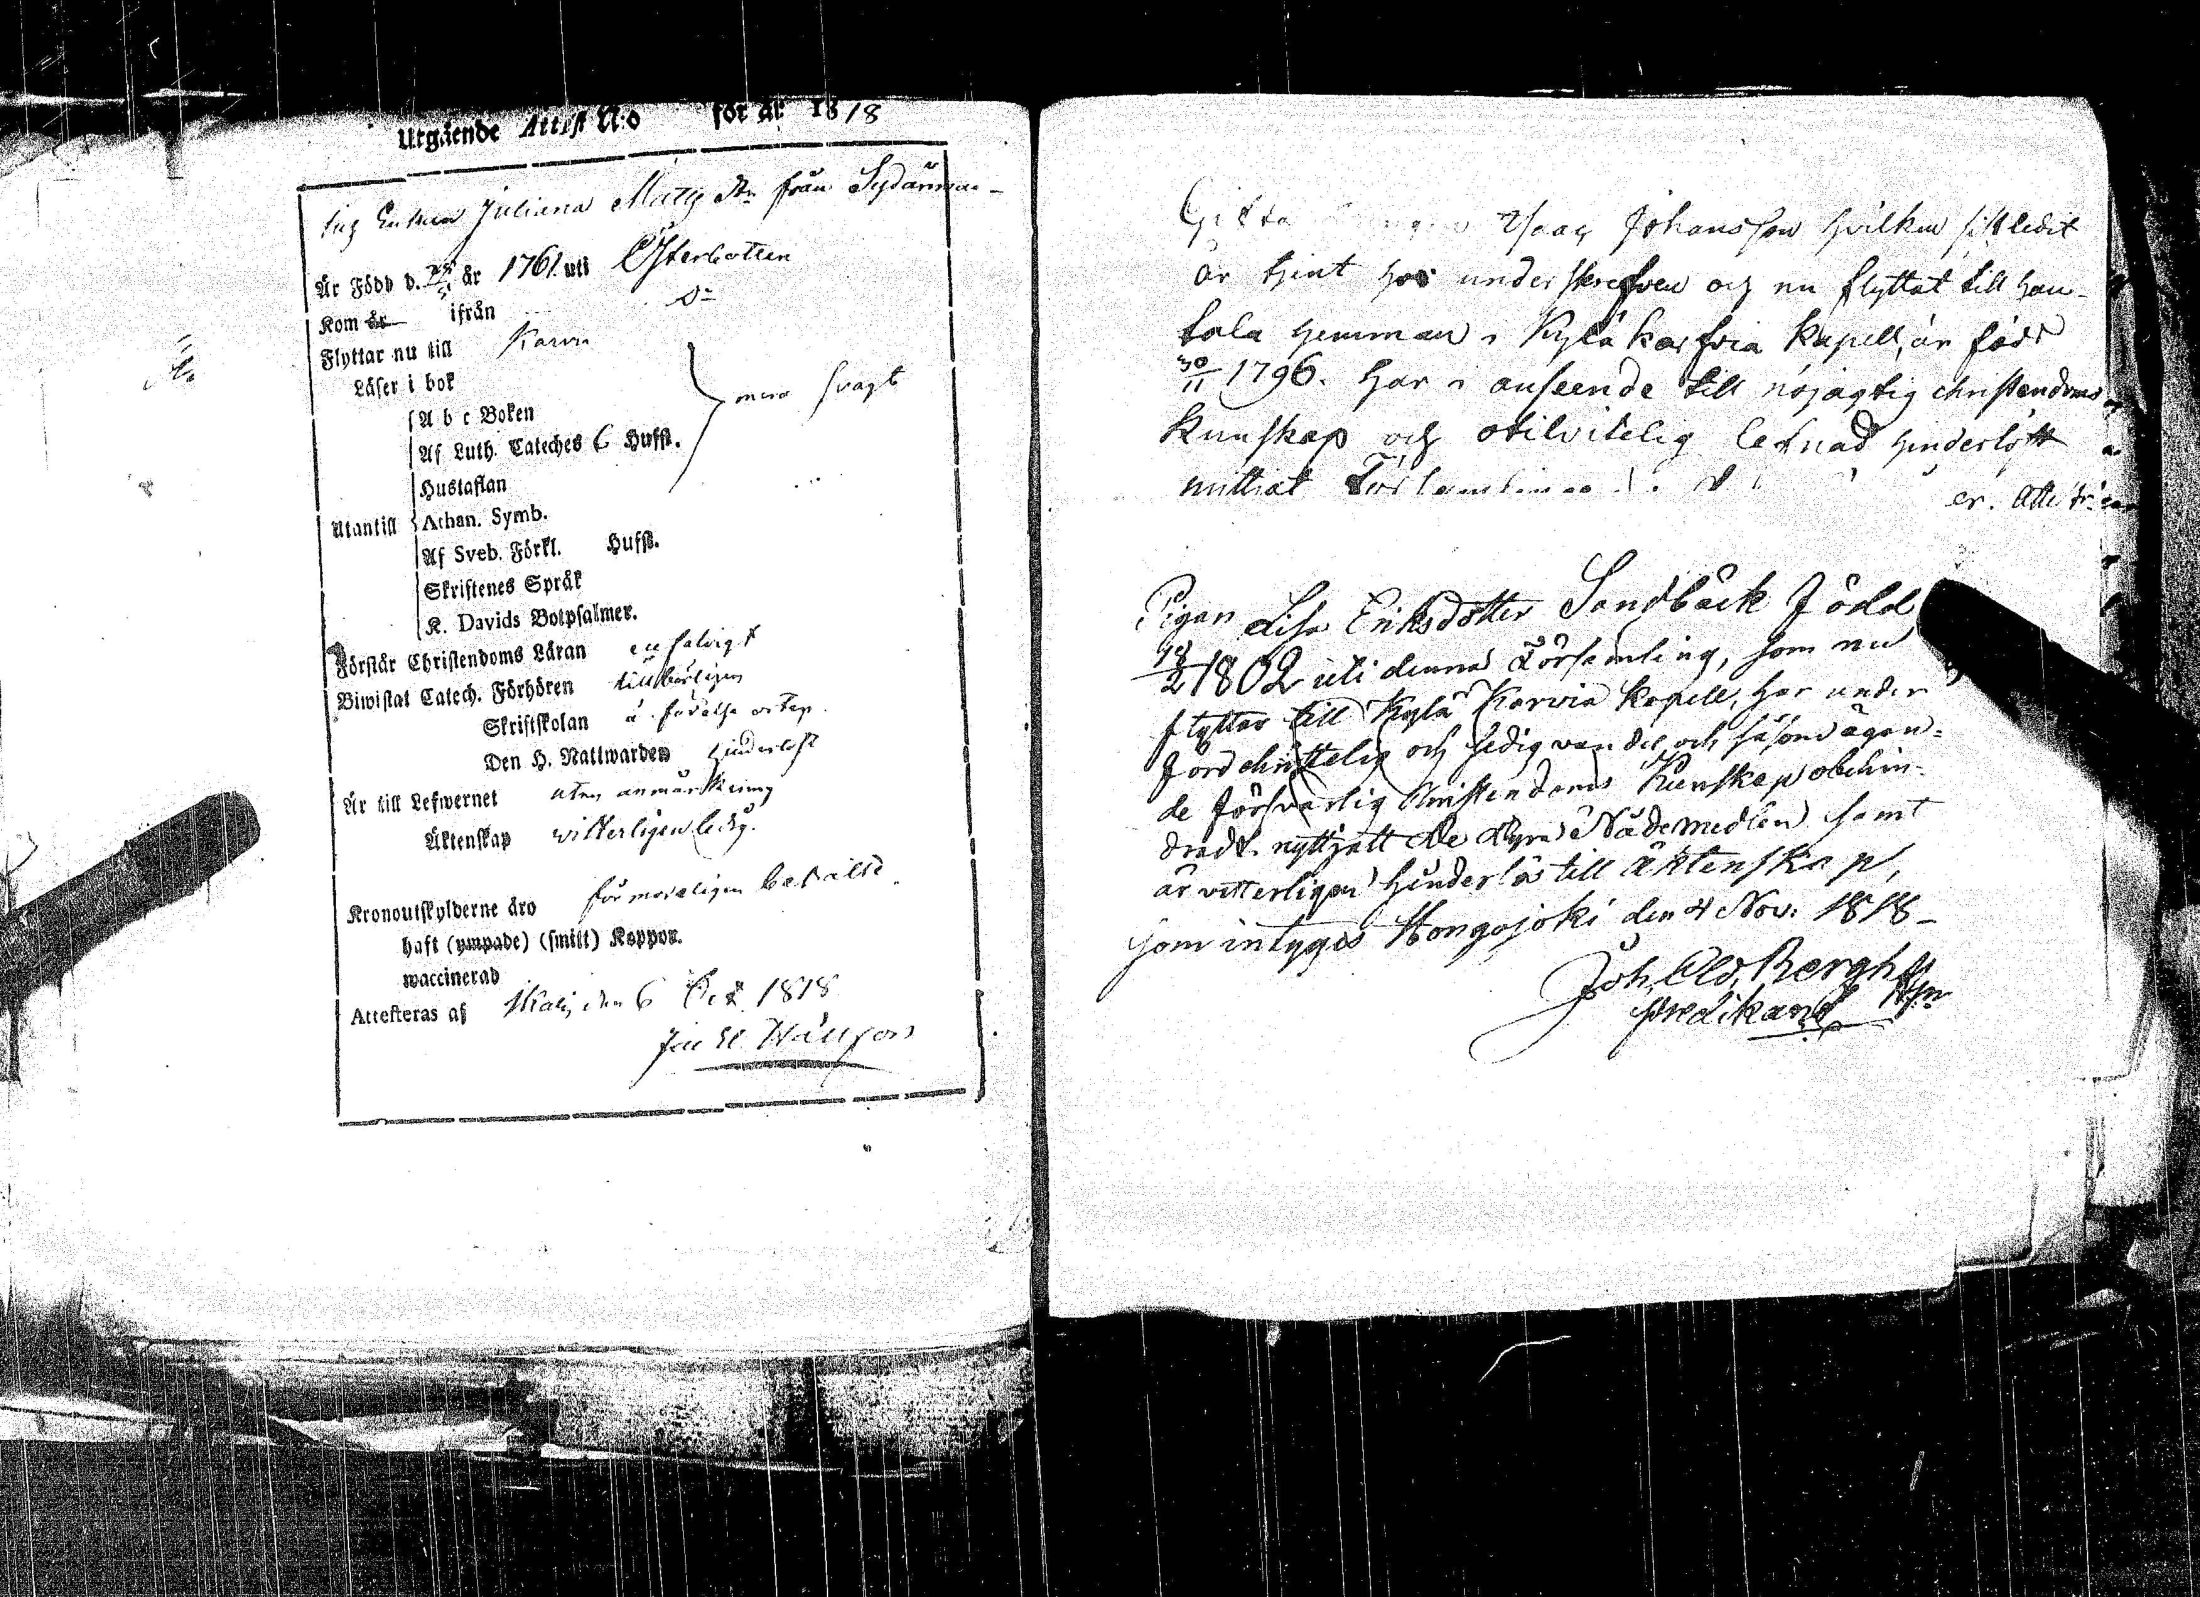 Utgående Attest N:o för år 1818
Enkan Juliana Matts Dr från Sydänmaa-
Är Född d. år 1761. uti Österbotten
Kom år ifrån Do
Flyttar nu till Karvia
Läser i bok
A b c Boken
mera svagt
Af Luth. Cateches 6 Hufst.
Hustaflan
Utantill Athan. Symb.
Af Sveb. Förkl. Hufst.
Skriftenes Språk
K. Davids Botpsalmer.
Förstår Christendoms Läran enfaldigt
Biwistat Catech. Förhören tillbörligen
Skriftskolan
Den H. Nattwarden hinderlöst
Är till Lefwernet utan anmärkning
Äktenskap witterligen ledig.
Kronoutskylderne äro förmodeligen betalte.
haft (ympade) (smitt) Koppor.
waccinerad
Attesteras af Ikalis den 6 Oct. 1818
Isaac Johansson hvilken sistledit
år tjent hos underskrefven och nu flyttat till Han-
tala hemman i Kylä Karfvia Kapell, är född
30/11 1796. Har i anseende till nöjagtig christendoms
kunskap och otilvitelig lefnad hinderlöst
nyttiat
Pigan Lisa Eriksdotter Sandbäck Född
18/2 1802 uti denna Församling, som nu
flyttar till Kylä Karvia Kapell, har under
fördt christelig och sedig vandel och såsom ägan-
de försvarlig Christendoms Kunskap obehin-
dradt nyttjatt de dyra Nådemedlen samt
är vitterligen hinderlös till äktenskap,
som intygas Hongojoki den 4 Nov. 1818-
Joh. Old. Bergh
predikant